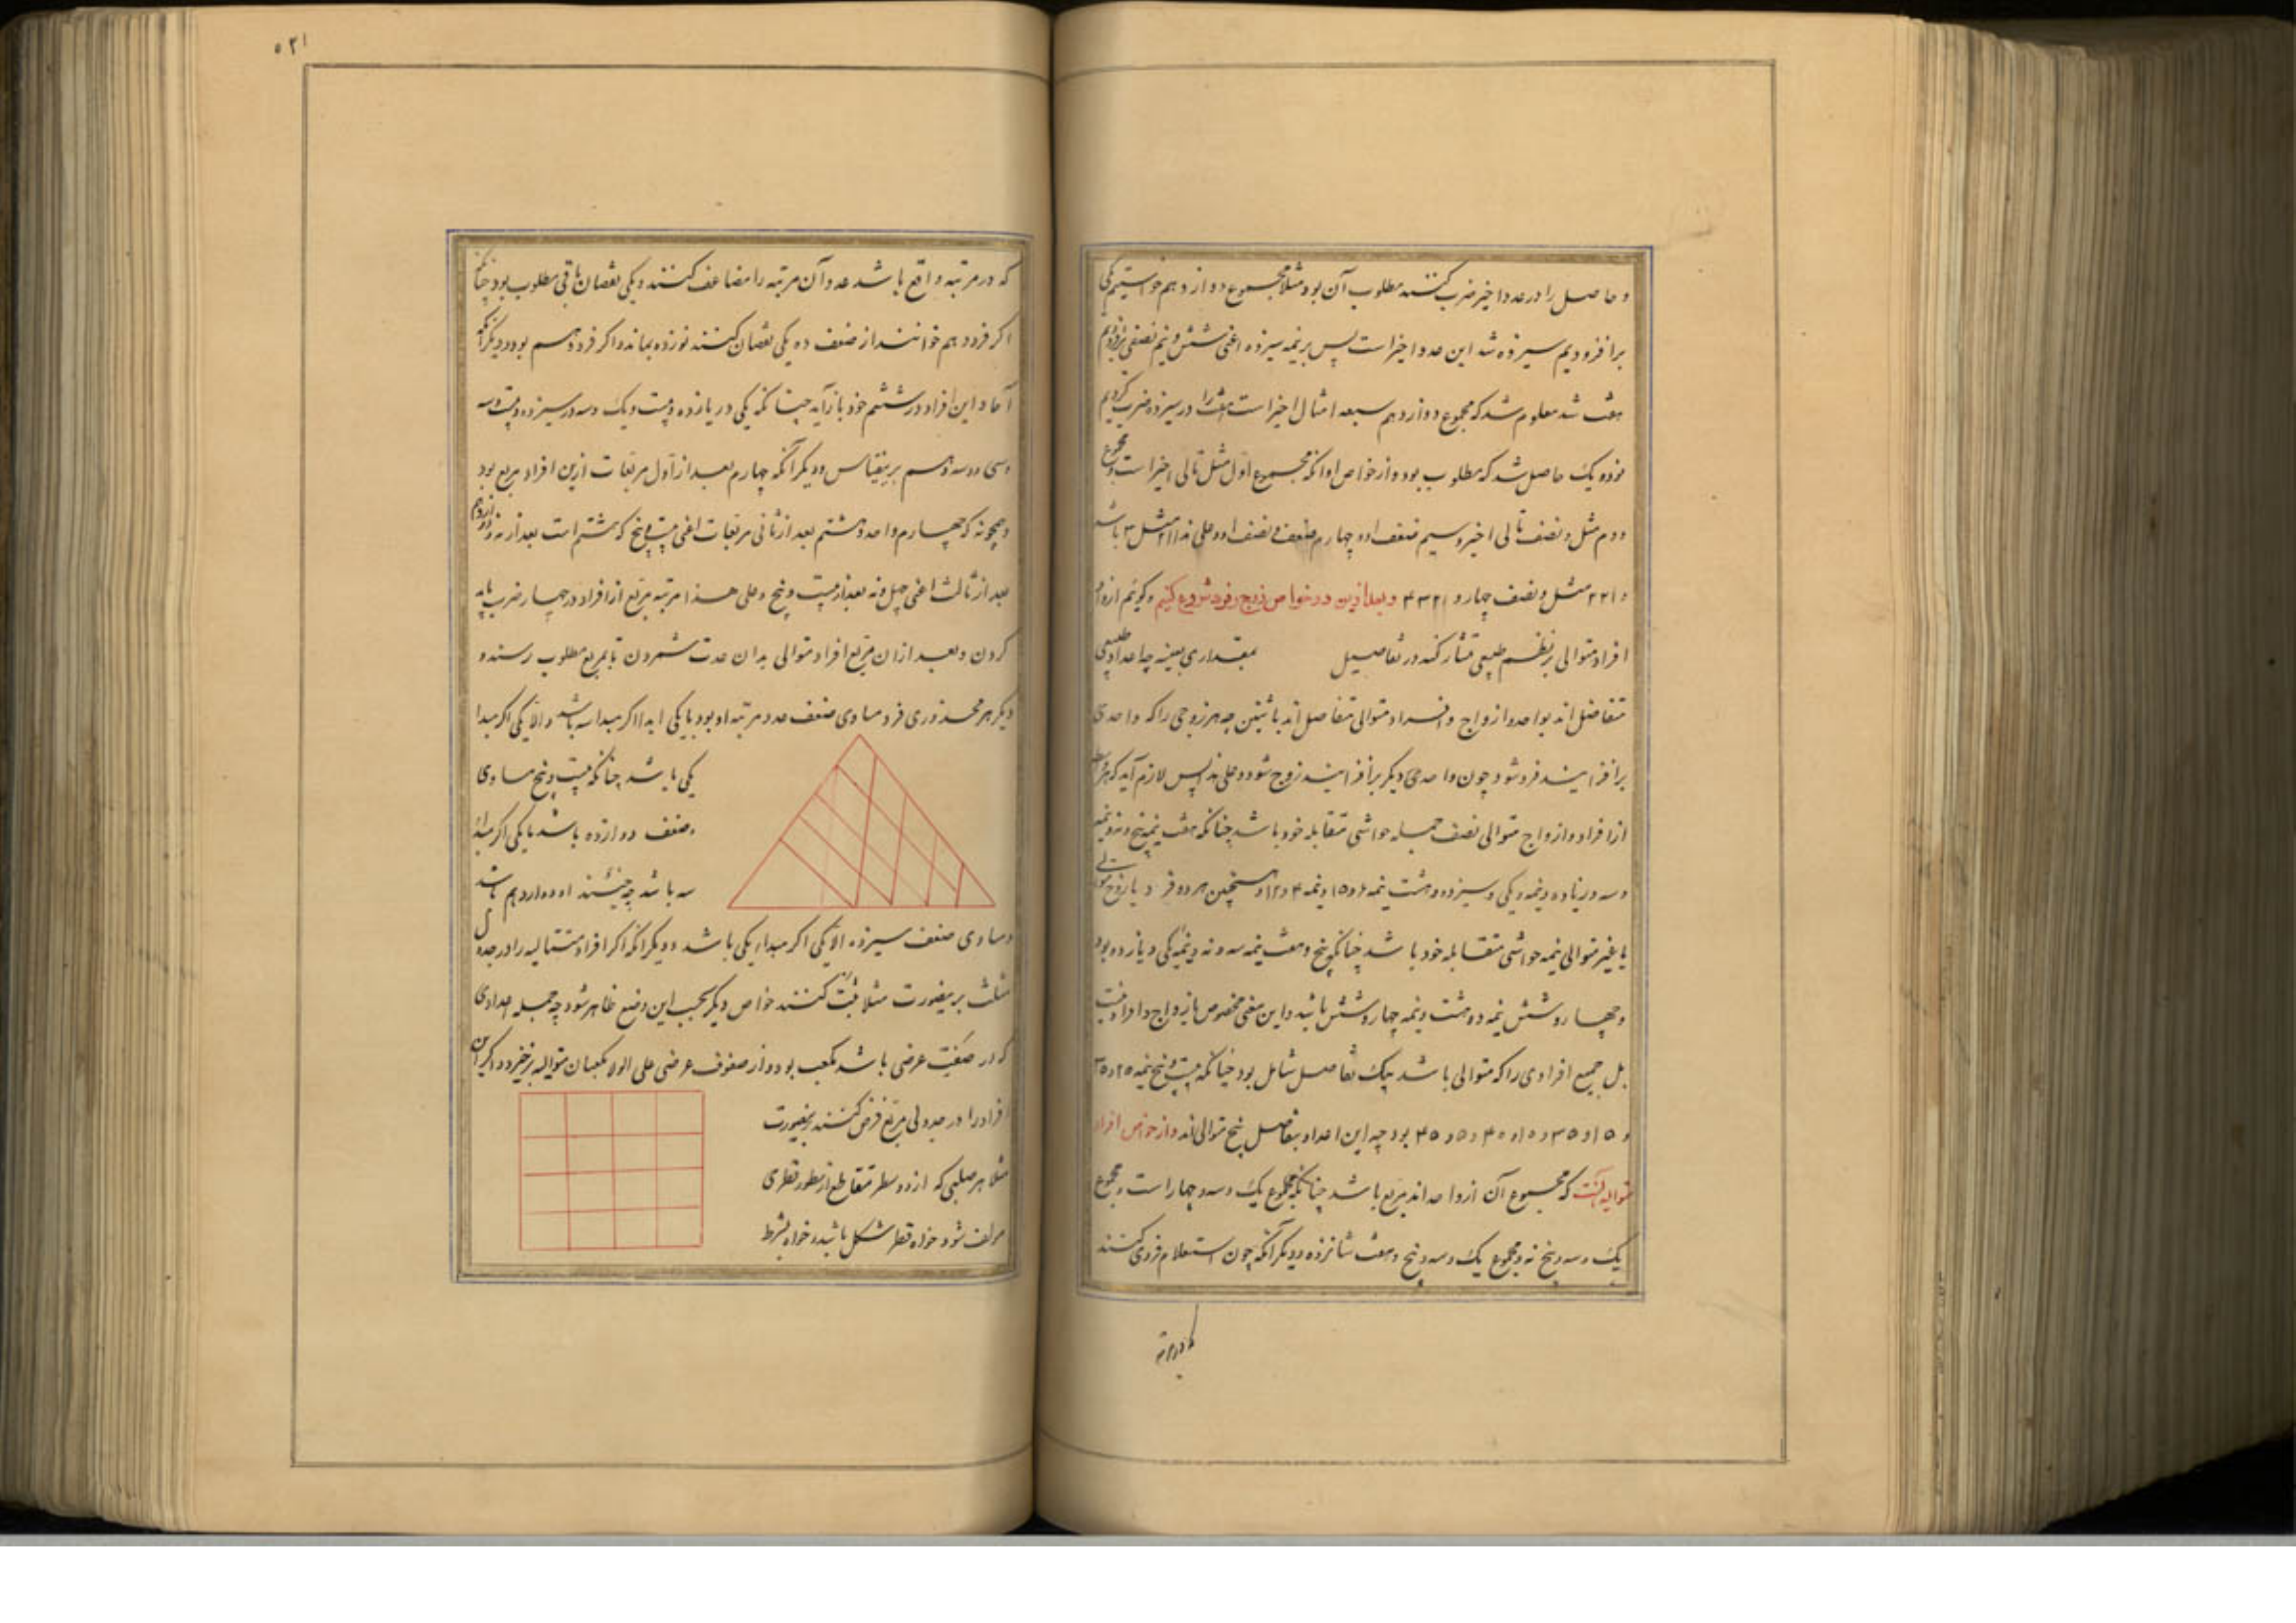 و حاصل را در عدد اخیر ضرب کنند مطلوب آن بود مثلا مجموع دوازدهم خواستیم یکی
برافزودیم سیزده شد این عدد اخیر است پس بر نیمه سیزده اعنی شش و نیم نصفی افزودیم
هفت شد معلوم شد که مجموع دوازدهم سبعه امثال اخیر است هفت را در سیزده ضرب کردیم
نود و یک حاصل شد که مطلوب بود و از خواص او آنکه مجموع اول مثل تالی اخیر است و مجموع
دوم مثل و نصف تالی اخیر و سیم ضعف او و چهارم ضعف و نصف او و علی هذا ۲۱ مثل ۳ باشد
و ۳۲۱ مثل و نصف چهار و ۴۳۲۱ و بعد ازین در خواص زوج و فرد شروع کنیم و گوئیم ازواج
افراد متوالی بر نظم طبیعی متشارکند در تفاصیل بمقداری بعینه چه اعداد طبیعی
متفاضل اند بواحد و ازواج و افراد متوالی متفاضل اند باثنین چه هر زوجی را که واحدی
برافزایند فرد شود چون واحدی دیگر برافزایند زوج شود و علی هذا پس لازم آید که هر
از افراد و ازواج متوالی نصف جمله حواشی متقابله خود باشد چنانکه هفت نیمه پنج و نه و نیمه
و سه و یازده و نیمه یکی و سیزده و هشت نیمه ۶ و ۱۰ و نیمه ۴ و ۱۲ و همچنین هر دو فرد یا زوج متوالی
یا غیر متوالی نیمه حواشی متقابله خود باشد چنانکه پنج و هفت نیمه سه و نه و نیمه یکی و یازده بود
و چهار و شش نیمه ده هشت و نیمه چهار و شش باشد و این معنی مخصوص بازواج و افراد نیست
بل جمیع افرادی را که متوالی باشد بیک تفاصل شامل بود چنانکه بیست و پنج نیمه ۲۰ و ۳۰
و ۱۵ و ۳۵ و ۱۰ و ۴۰ و ۵ و ۴۵ بود چه این اعداد بتفاصل پنج متوالی اند و از خواص افراد
متوالیه آنست که مجموع آن از واحد اند مربع باشد چنانکه مجموع یک و سه و چهار است و مجموع
یک و سه و پنج نه و مجموع یک و سه و پنج و هفت شانزده و دیگر آنکه چون استعلام فردی کنند
که در مرتبه
۵۲۱
که در مرتبه واقع باشد عدد آن مرتبه را مضاعف کنند و یکی نقصان باقی مطلوب بود چنانکه
اگر فرد دهم خوانند از ضعف ده یکی نقصان کنند نوزده بماند و آن فرد دهم بود و دیگر آنکه
آحاد این افراد در ششم خود باز آید چنانکه یکی در یازده و بیست و یک و سه در سیزده و بیست و سه
و سی و سه و هم برین قیاس و دیگر آنکه چهارم بعد از اول مربعات ازین افراد مربع بود
و همچو نه که چهارم واحد و هشتم بعد از ثانی مربعات اعنی بیست و پنج که هشتم است بعد از نه و دوازدهم
بعد از ثالث اعنی چهل و نه بعد از بیست و پنج و علی هذا مرتبه مربع از افراد در چهار ضرب باید
کردن و بعد از ان مربع افراد متوالی بدان عدت شمردن تا بمربع مطلوب رسند و
دیگر هر مجذوری فرد مساوی ضعف عدد مرتبه او بود با یکی ابدا اگر مبدا سه باشد و الا یکی اگر مبدا
یکی باشد چنانکه بیست و پنج مساوی
ضعف دوازده باشد با یکی اگر مبدا
سه باشد چه او دوازدهم باشد
و مساوی ضعف سیزده الا یکی اگر مبدا یکی باشد و دیگر آنکه اگر افراد متتالیه را در جدول
مثلث برین صورت مثلا ثبت کنند خواص دیگر بحسب این وضع ظاهر شود چه جمله اعدادی
که در صف عرضی باشد مکعب بود و از صفوف عرضی علی الولا مکعبات متوالیه برخیزد و اگر این
افراد را در جدولی مربع فرض کنند برین صورت
مثلا هر صلیبی که از دو سطر متقاطع از سطور قطری
مولف شود خواه قطر شکل باشد و خواه بشرط